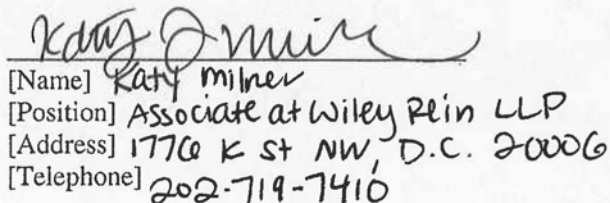 [Name] Katy Milner
[Position] Associate at Wiley Rein LLP
[Address] 1776 K St NW, D.C. 20006
[Telephone] 202-719-7410